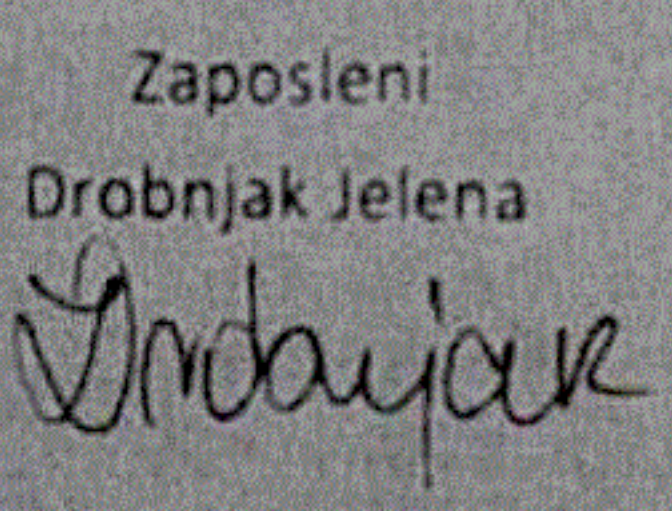 Zaposleni
Drobnjak Jelena
Drobnjak